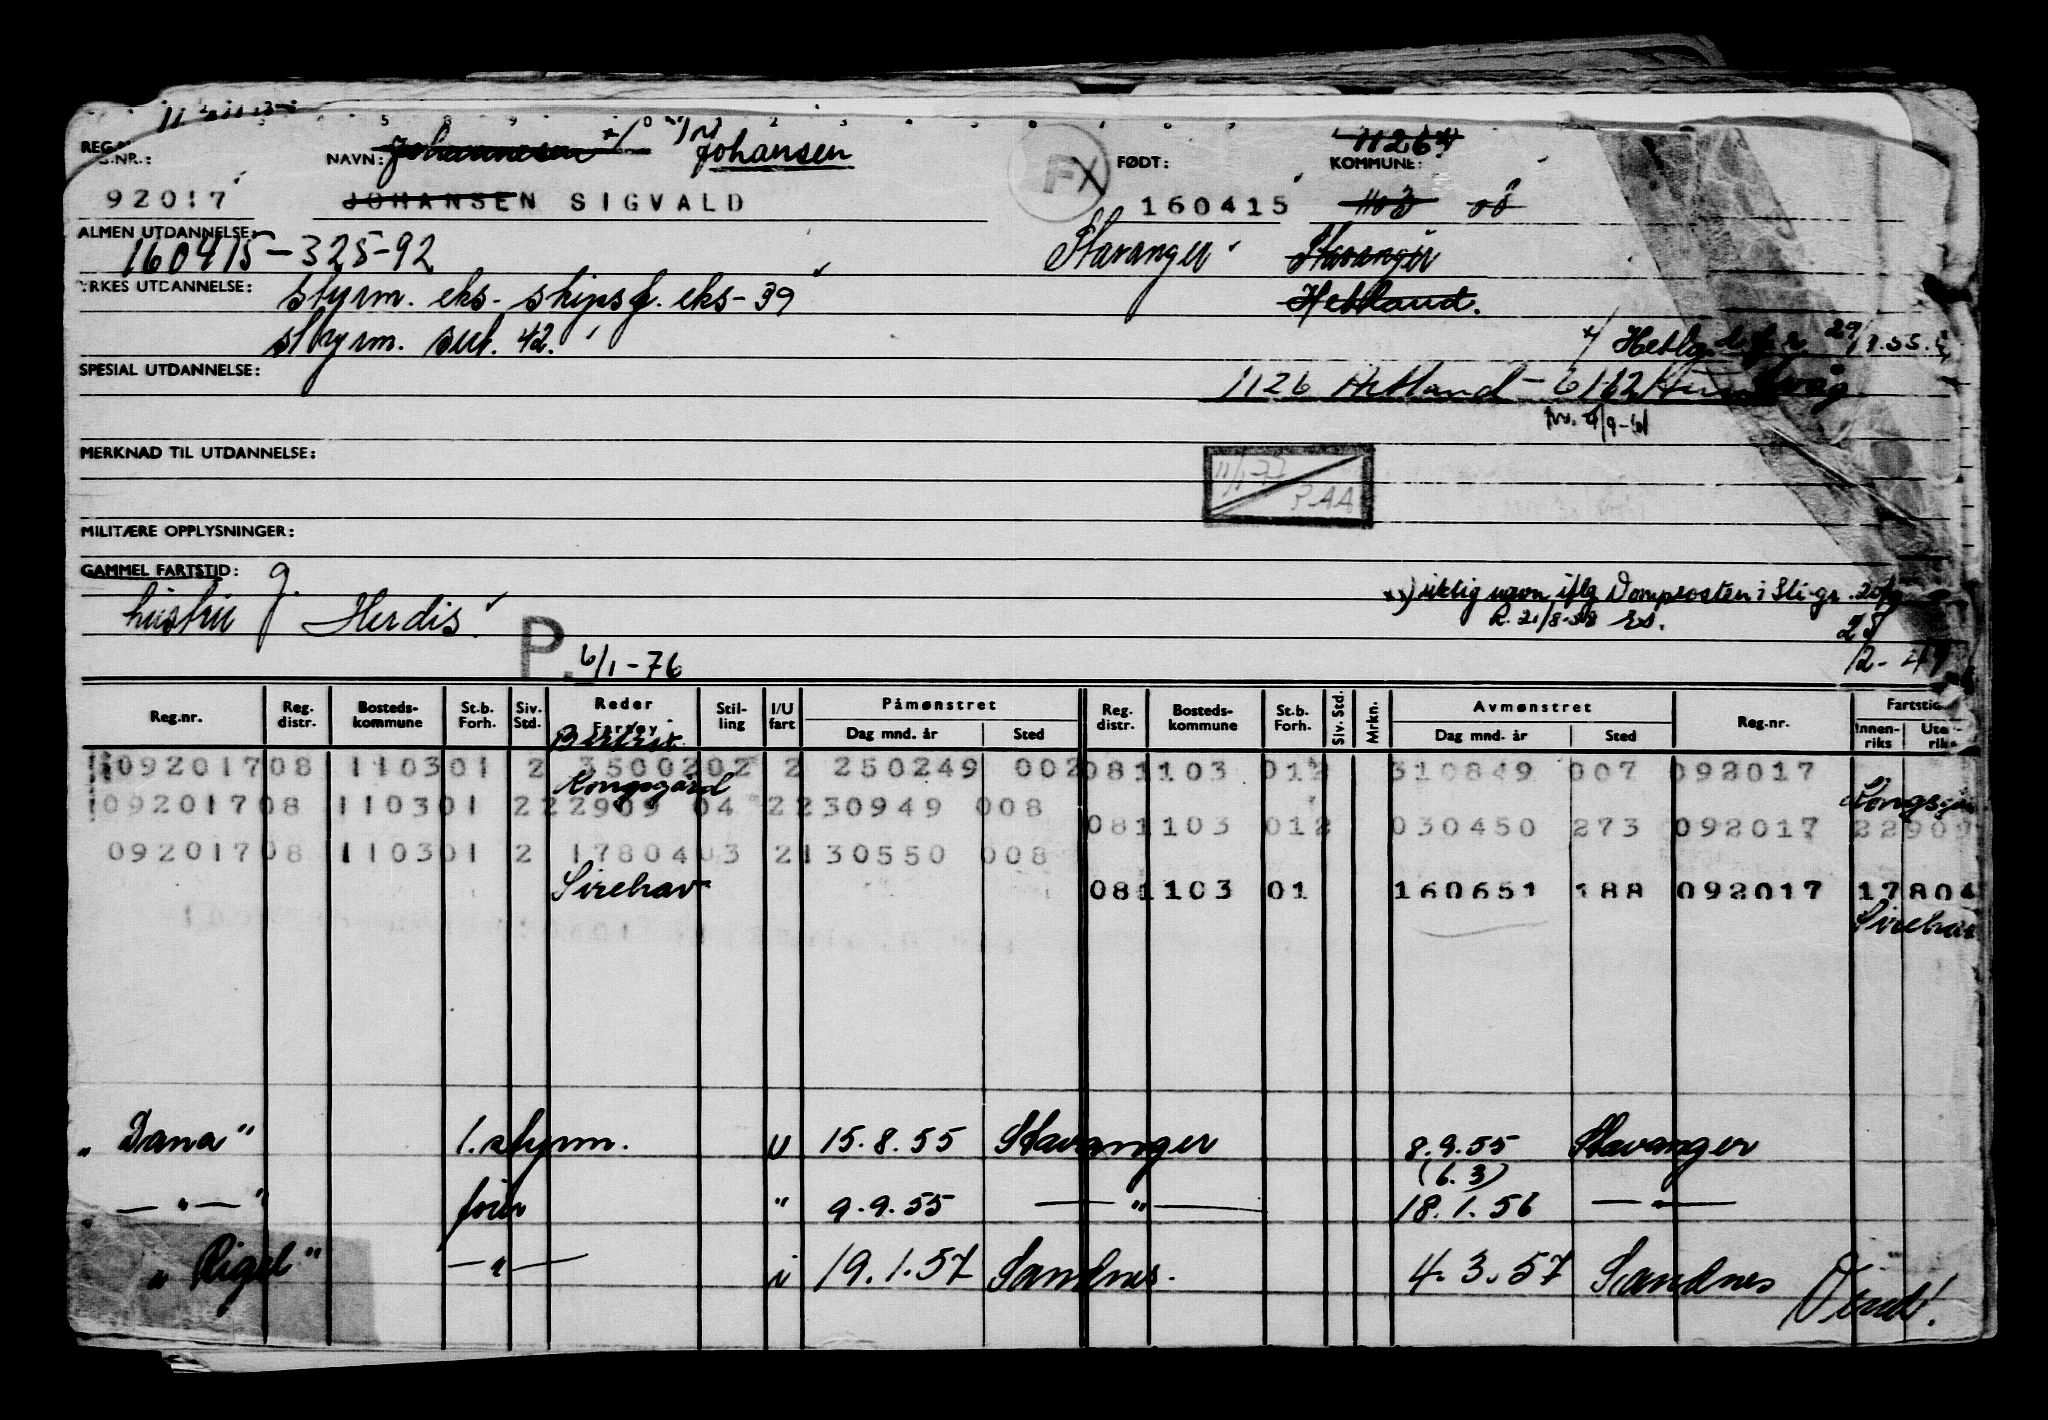 REG.NR.: NAVN: Johannesen Johansen FØDT: KOMMUNE: 11264
92017 JOHANSEN SIGVALD FX 160415
ALMEN UTDANNELSE:
160415-325-92 Stavanger Stavanger
YRKES UTDANNELSE: styrm. eks - skipsf. eks - 39 Hetland.
styrm. 42.
SPESIAL UTDANNELSE:
1126 Hetland - 6162 Hundvåg
MERKNAD TIL UTDANNELSE:
11/1-77
MILITÆRE OPPLYSNINGER:
GAMMEL FARTSTID: g.
hustru Herdis
riktig navn iflg Domprosten i
R. 21/8-58
P. 6/1-76
Reg.nr. Reg. distr. Bosteds-kommune St.b. Forh. Siv. Std. Reder Fartøy Stil-ling I/U fart Påmønstret Reg. distr. Bosteds-kommune St.b. Forh. Siv. Std. Mrkn. Avmønstret Reg.nr. Fartstid
Dag mnd. år Sted Dag mnd. år Sted Innen-riks Ute-riks
092017 08 1103 01 2 35002 02 2 250249 002 08 1103 01 2 310849 007 092017
Kongsgård
092017 08 1103 01 2 22909 04 2 230949 008
08 1103 01 2 030450 273 092017 2290
092017 08 1103 01 2 17804 03 2 130550 008
Sirehav 08 1103 01 160651 188 092017 17804
Sirehav
"Dana" 1. styrm. U 15.8.55 Stavanger 8.9.55 Stavanger
(6.3)
" — " — " fører " 9.9.55 — " — 18.1.56 — " —
"Rigel" — " — i 19.1.57 Sandnes. 4.3.57 Sandnes
Vend!